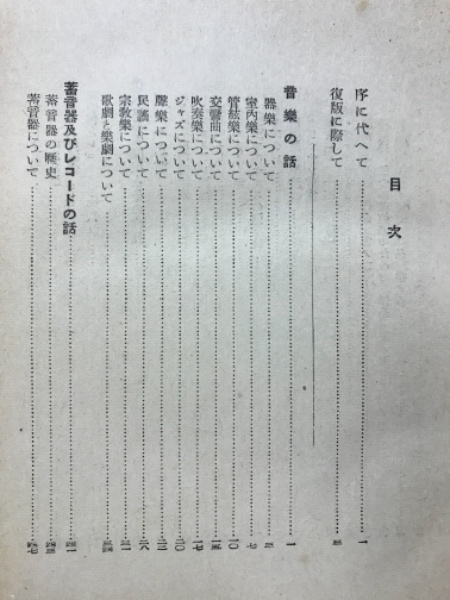 目次
序に代へて 一
復版に際して 三
音樂の話 一
器樂について 三
室內樂について 七
管弦樂について 一〇
交響曲について 一五
吹奏樂について 一七
ジャズについて 二〇
聲樂について 二三
民謠について 二八
宗教樂について 三一
歌劇と樂劇について
蓄音器及びレコードの話
蓄音器の歷史
蓄音器について